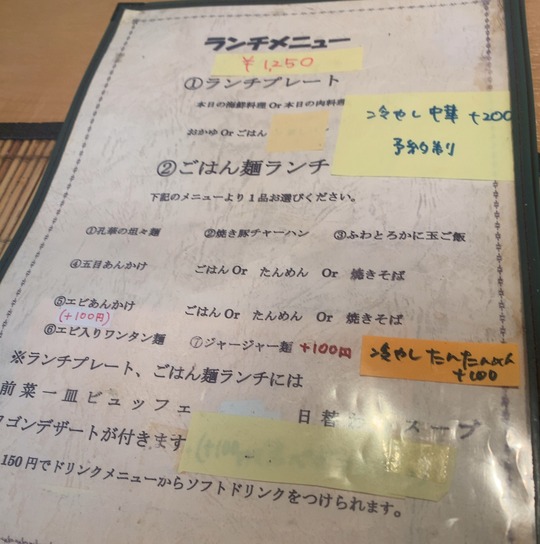 ランチメニュー
￥1,250
①ランチプレート
本日の海鮮料理 Or 本日の肉料理
冷やし中華 +200
おかゆ Or ごはん
予約制
②ごはん麺ランチ
下記のメニューより１品お選びください。
①孔華の坦々麺 ②焼き豚チャーハン ③ふわとろかに玉ご飯
④五目あんかけ ごはん Or たんめん Or 焼きそば
⑤エビあんかけ ごはん Or たんめん Or 焼きそば
(+100円)
⑥エビ入りワンタン麺 ⑦ジャージャー麺 +100円
冷やしたんたんめん
+100
※ランチプレート、ごはん麺ランチには
前菜一皿ビュッフェ 日替 スープ
ワゴンデザートが付きます
150円でドリンクメニューからソフトドリンクをつけられます。